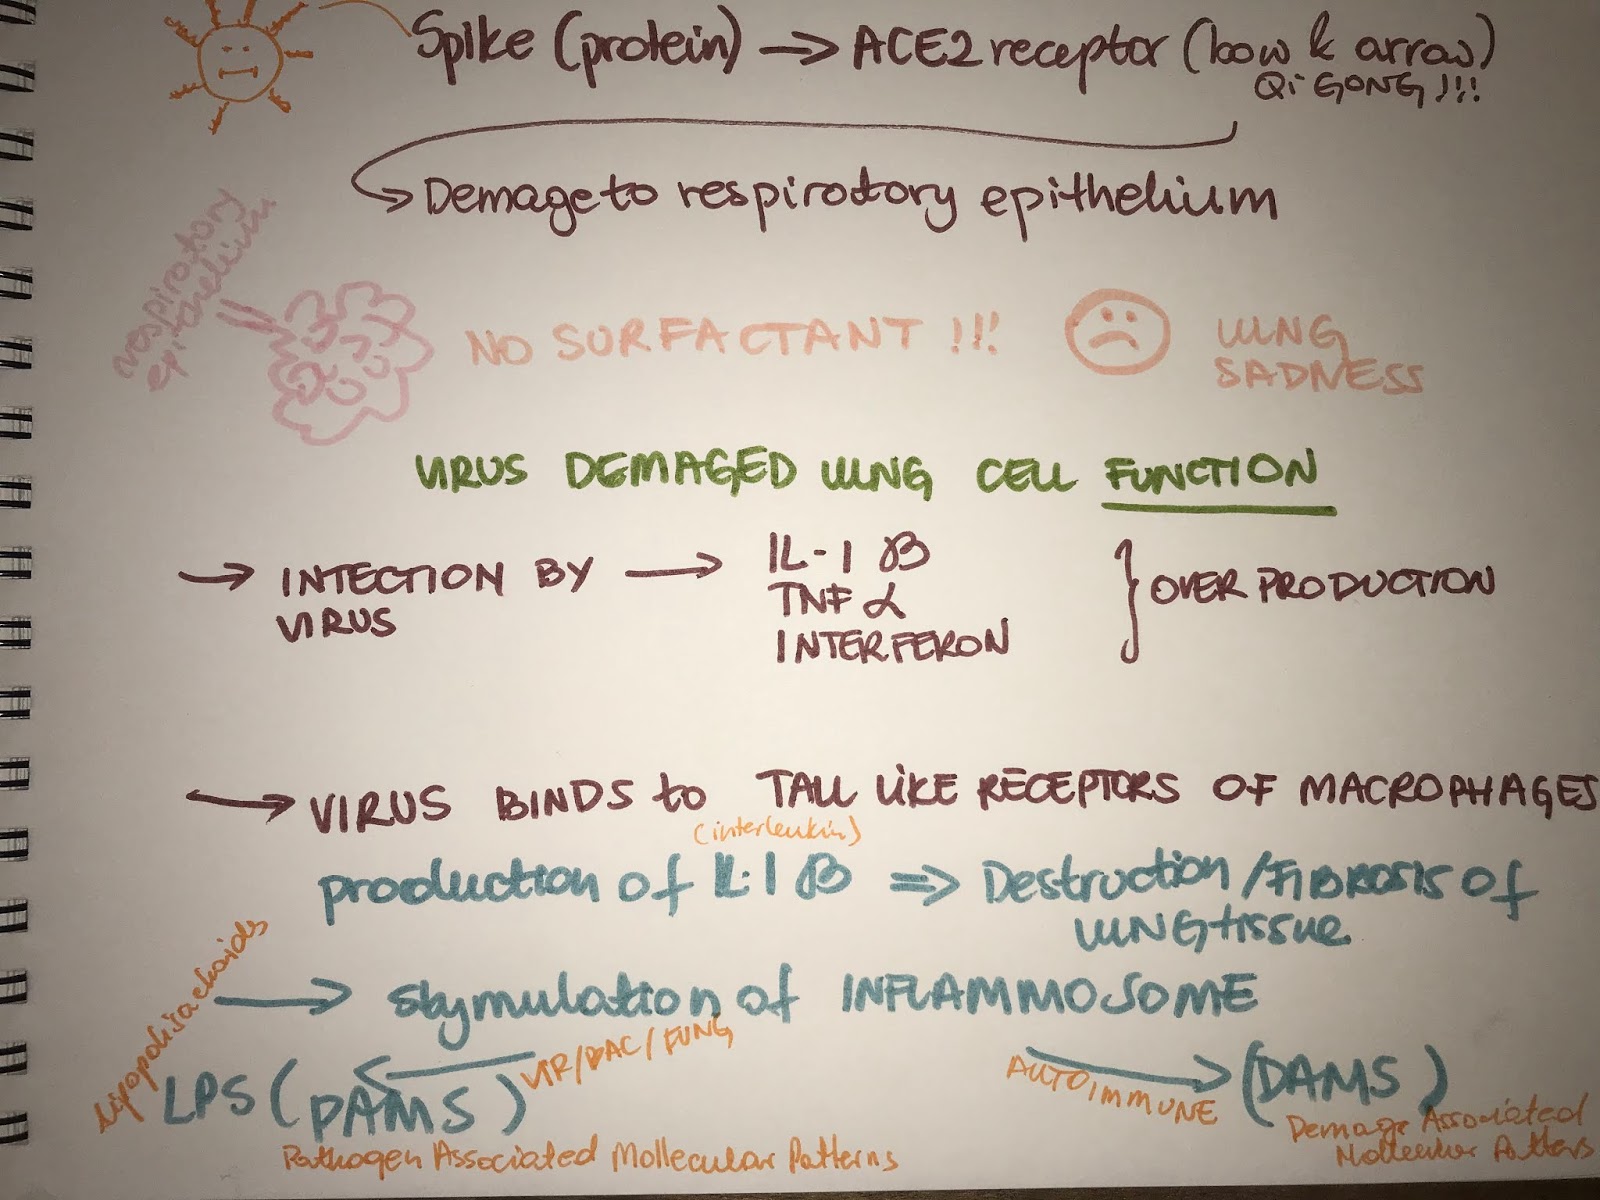 Spike (protein) → ACE2 receptor (bow & arrow)
Qi GONG !!!
Demage to respirotory epithelium
respirotory
epithelium
NO SURFACTANT !!!
LUNG
SADNESS
VIRUS DEMAGED LUNG CELL FUNCTION
→ INTECTION BY → IL-1 β
VIRUS
TNF α
INTERFERON
} OVER PRODUCTION
→ VIRUS BINDS to TALL LIKE RECEPTORS OF MACROPHAGES
(interleukin)
production of IL-1 β ⇒ Destruction/FIBROSIS of
LUNG tissue
→ stymulation of INFLAMMOSOME
VIR/BAC/FUNG
AUTOIMMUNE
LPS (PAMS)
(DAMS)
Pathogen Associated Mollecular Patterns
Demage Associated